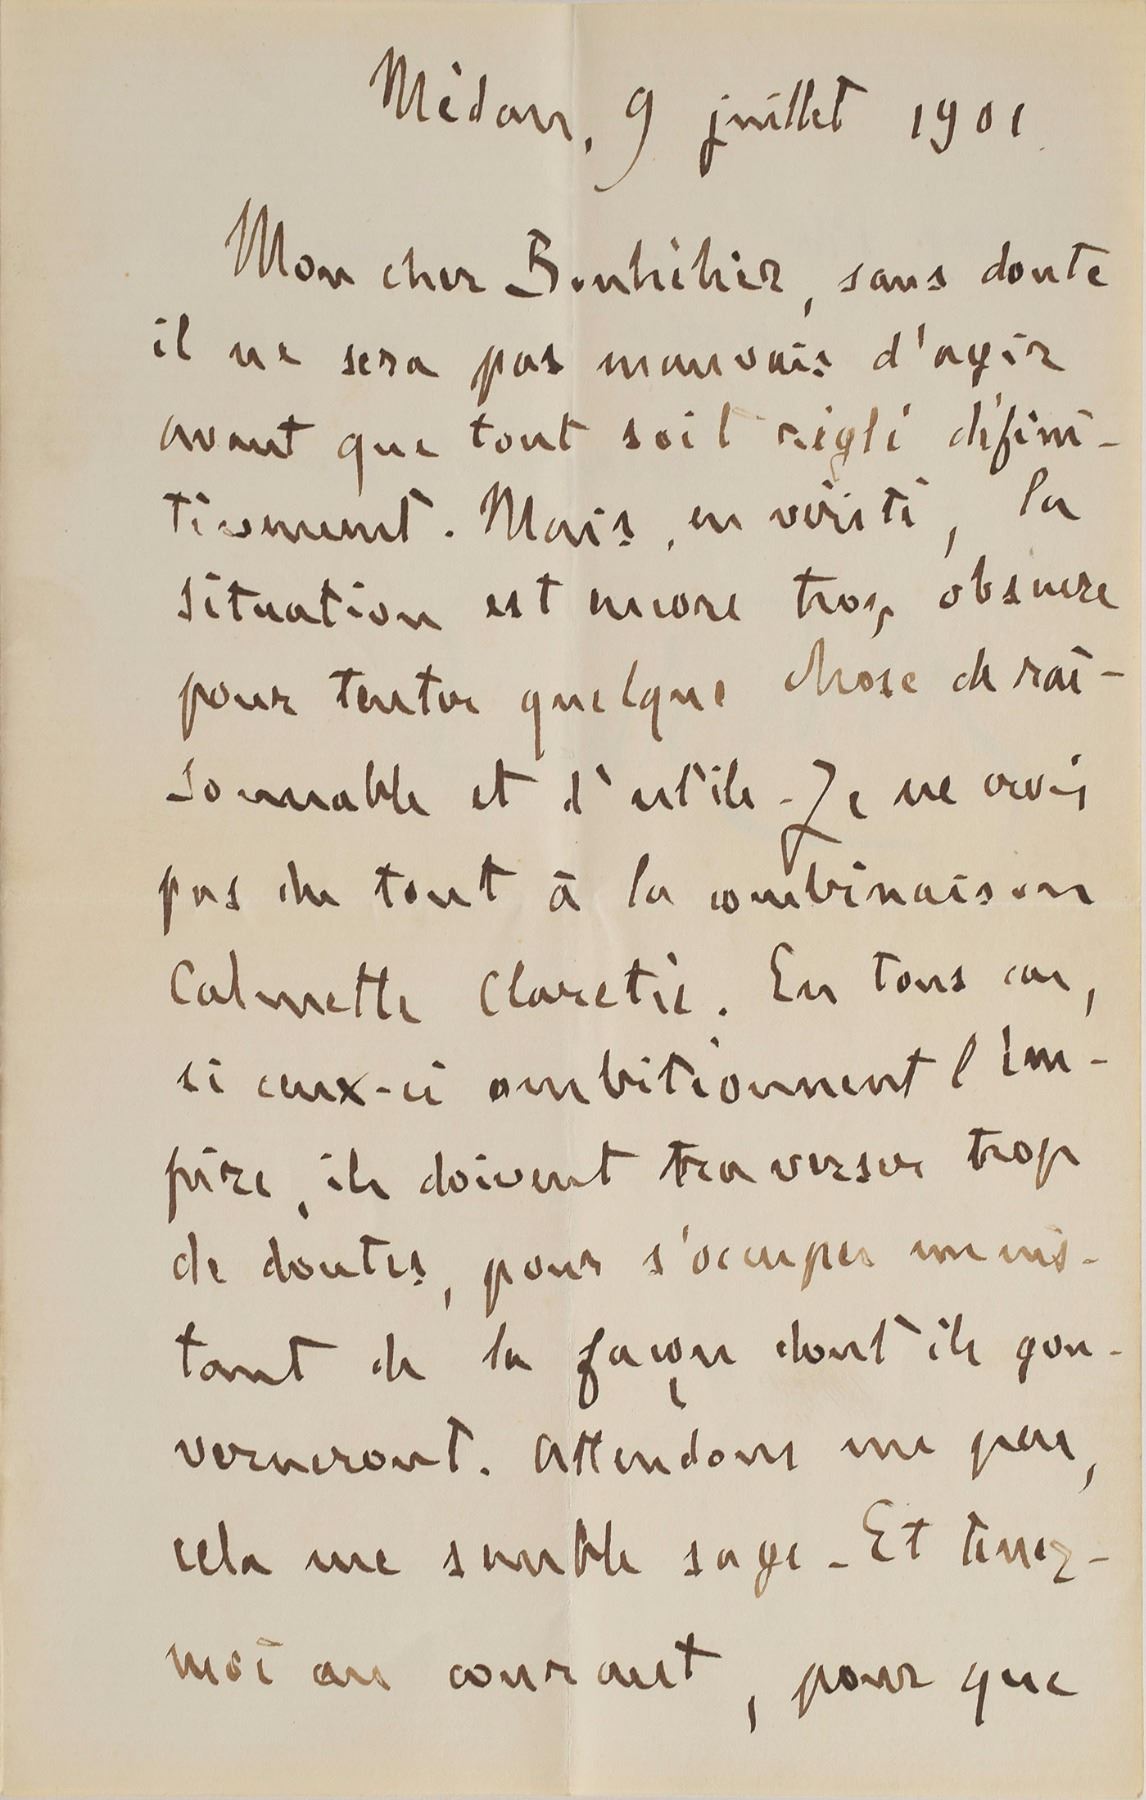 Médan, 9 juillet 1901
Mon cher Bouhélier, sans doute
il ne sera pas mauvais d'agir
avant que tout soit réglé défini-
tivement. Mais, en vérité, la
situation est encore trop obscure
pour tenter quelque chose de rai-
sonnable et d'utile. Je ne crois
pas du tout à la combinaison
Calmette Claretie. En tous cas,
si ceux-ci ambitionnent l'em-
pire, ils doivent traverser trop
de doutes, pour s'occuper un ins-
tant de la façon dont ils gou-
verneront. Attendons un peu,
cela me semble sage. Et tenez-
moi au courant, pour que